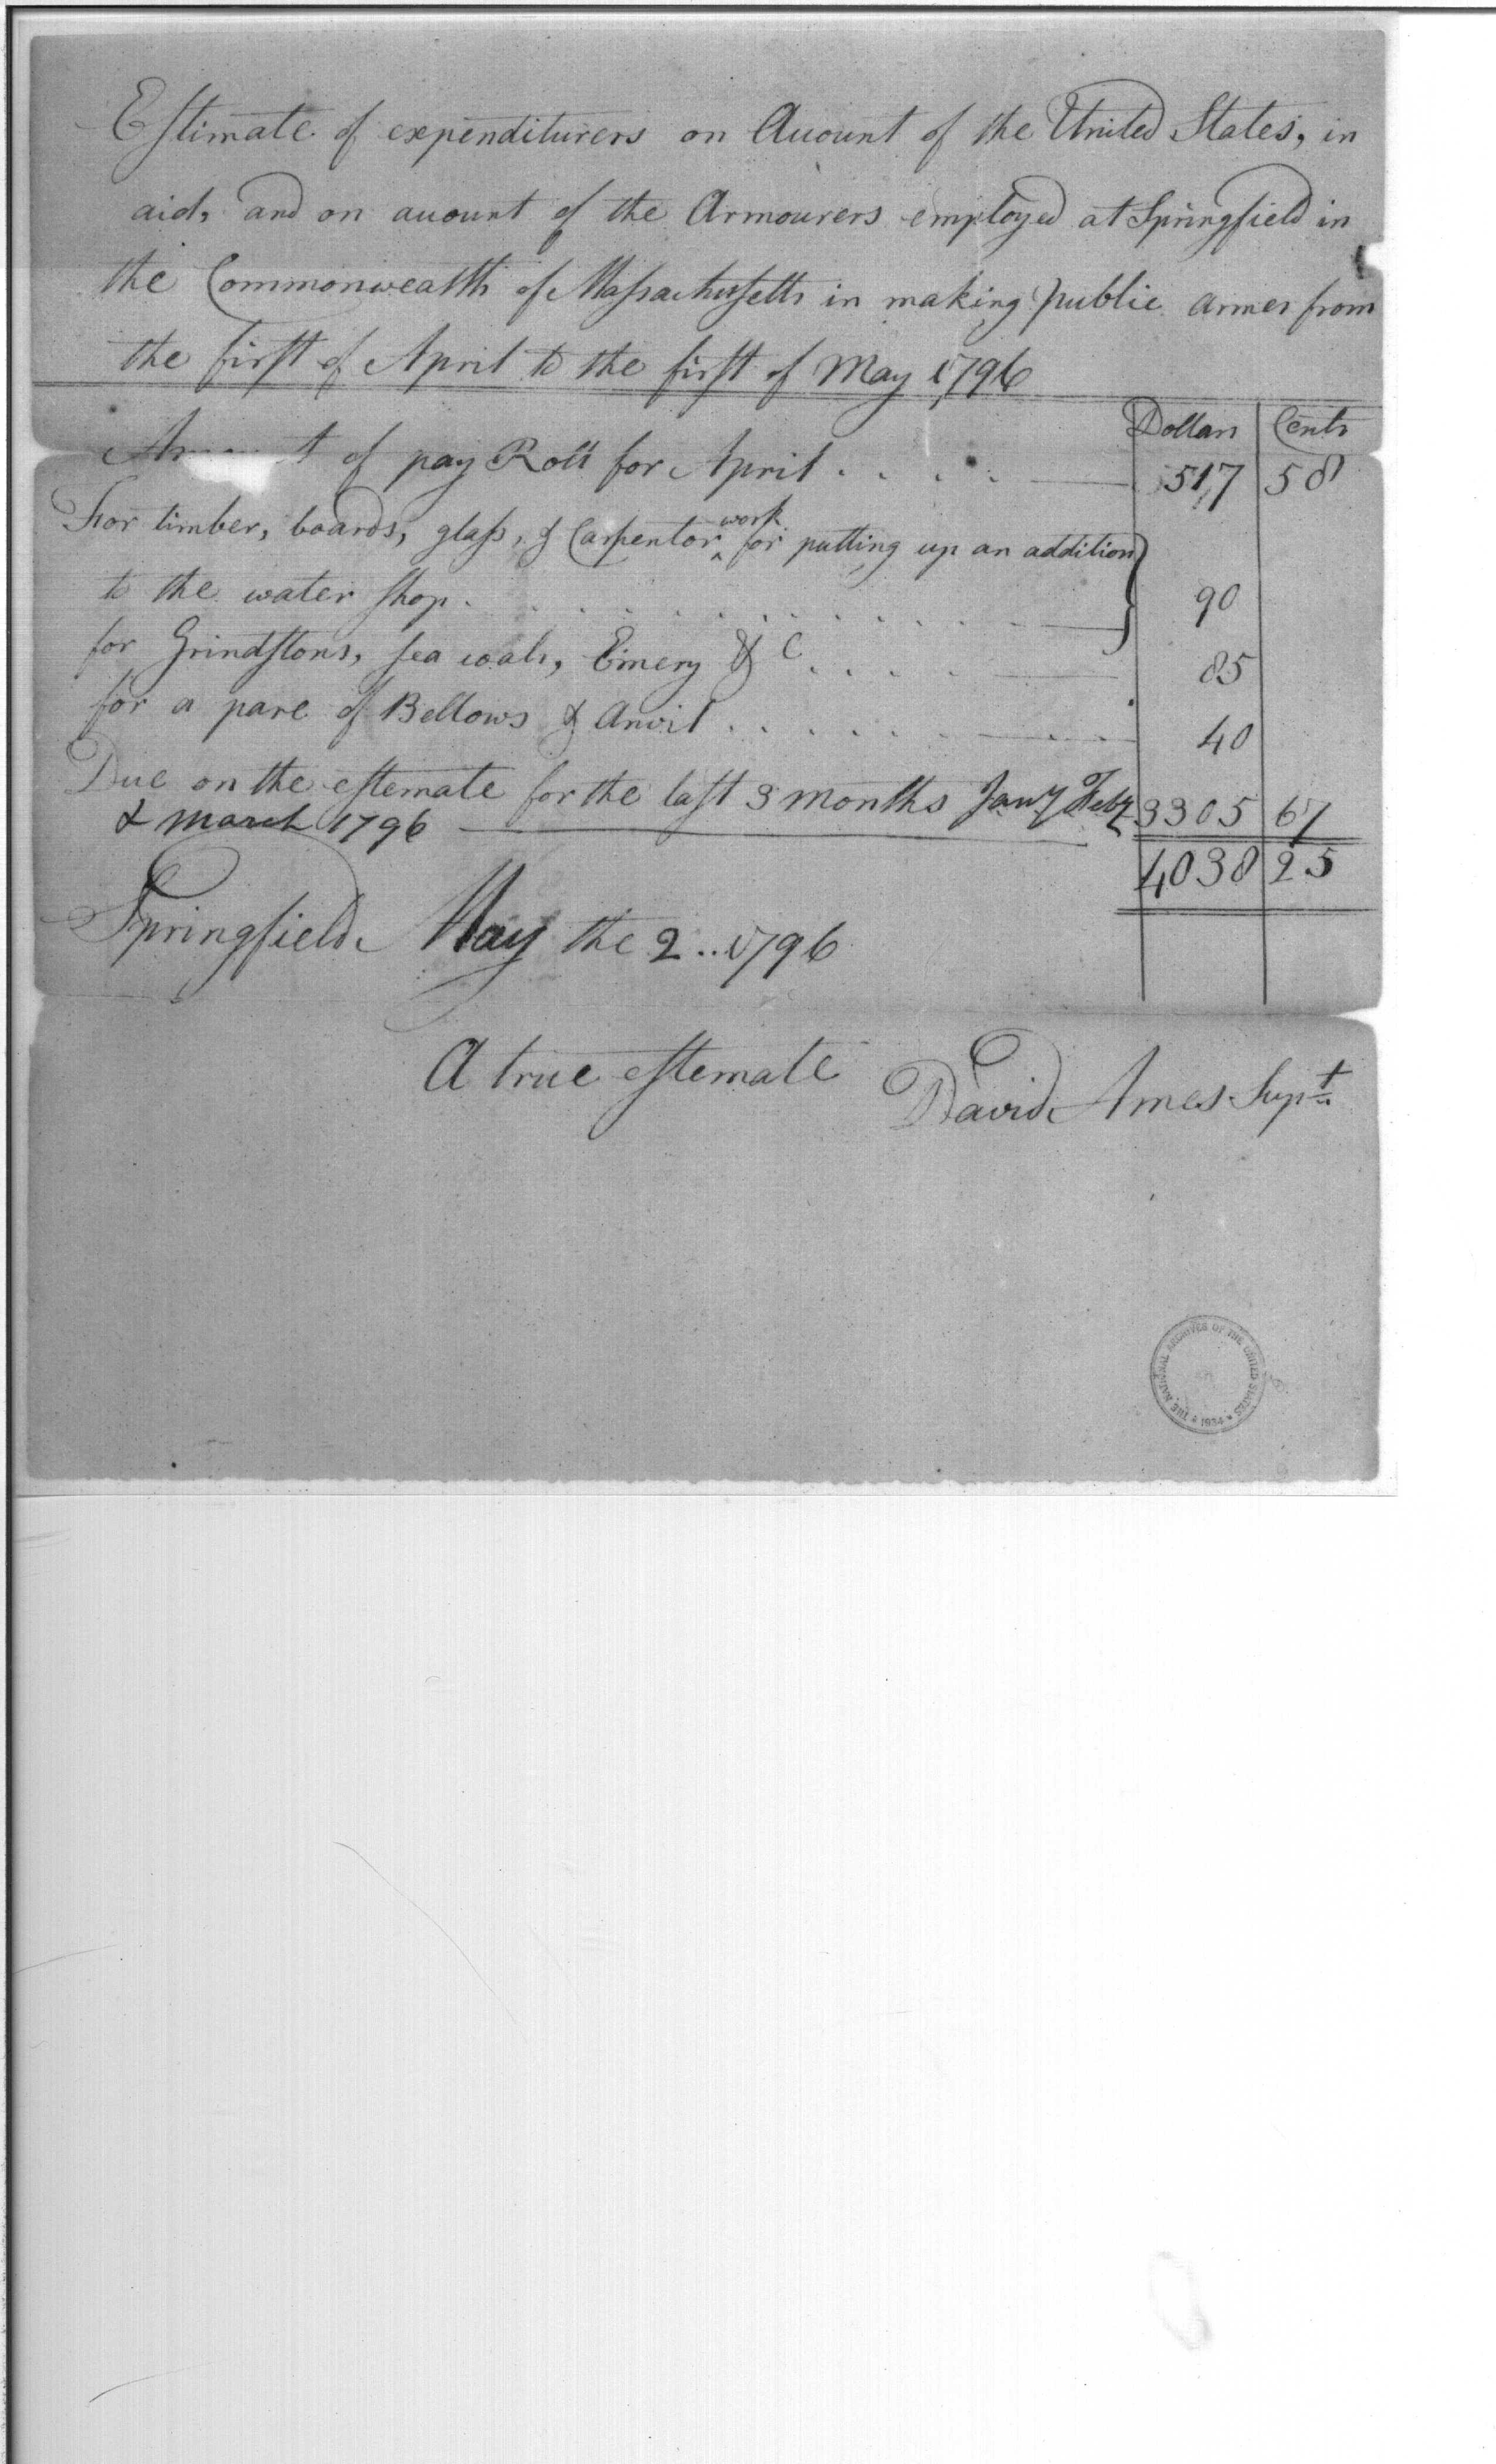 Estimate of expenditurers on Account of the United States, in
aid, and on account of the Armourers employed at Springfield in
the Commonwealth of Massachussetts in making public armes from
the first of April to the first of May 1796
Dollars Cents
of pay Roll for April . . . . 517 58
For timber, boards, glass, & Carpentor work for putting up an addition
to the water shop . . . . . . . . . . . 90
for Grindstons, sea coals, Emery & C . . . . 85
for a pare of Bellows & Anvil . . . . . . . 40
Due on the estemate for the last 3 months Jany Feby 3305 67
& March 1796
4038 25
Springfield May the 2 .. 1796
A true estemate David Ames Supt
THE NATIONAL ARCHIVES OF THE UNITED STATES 1934